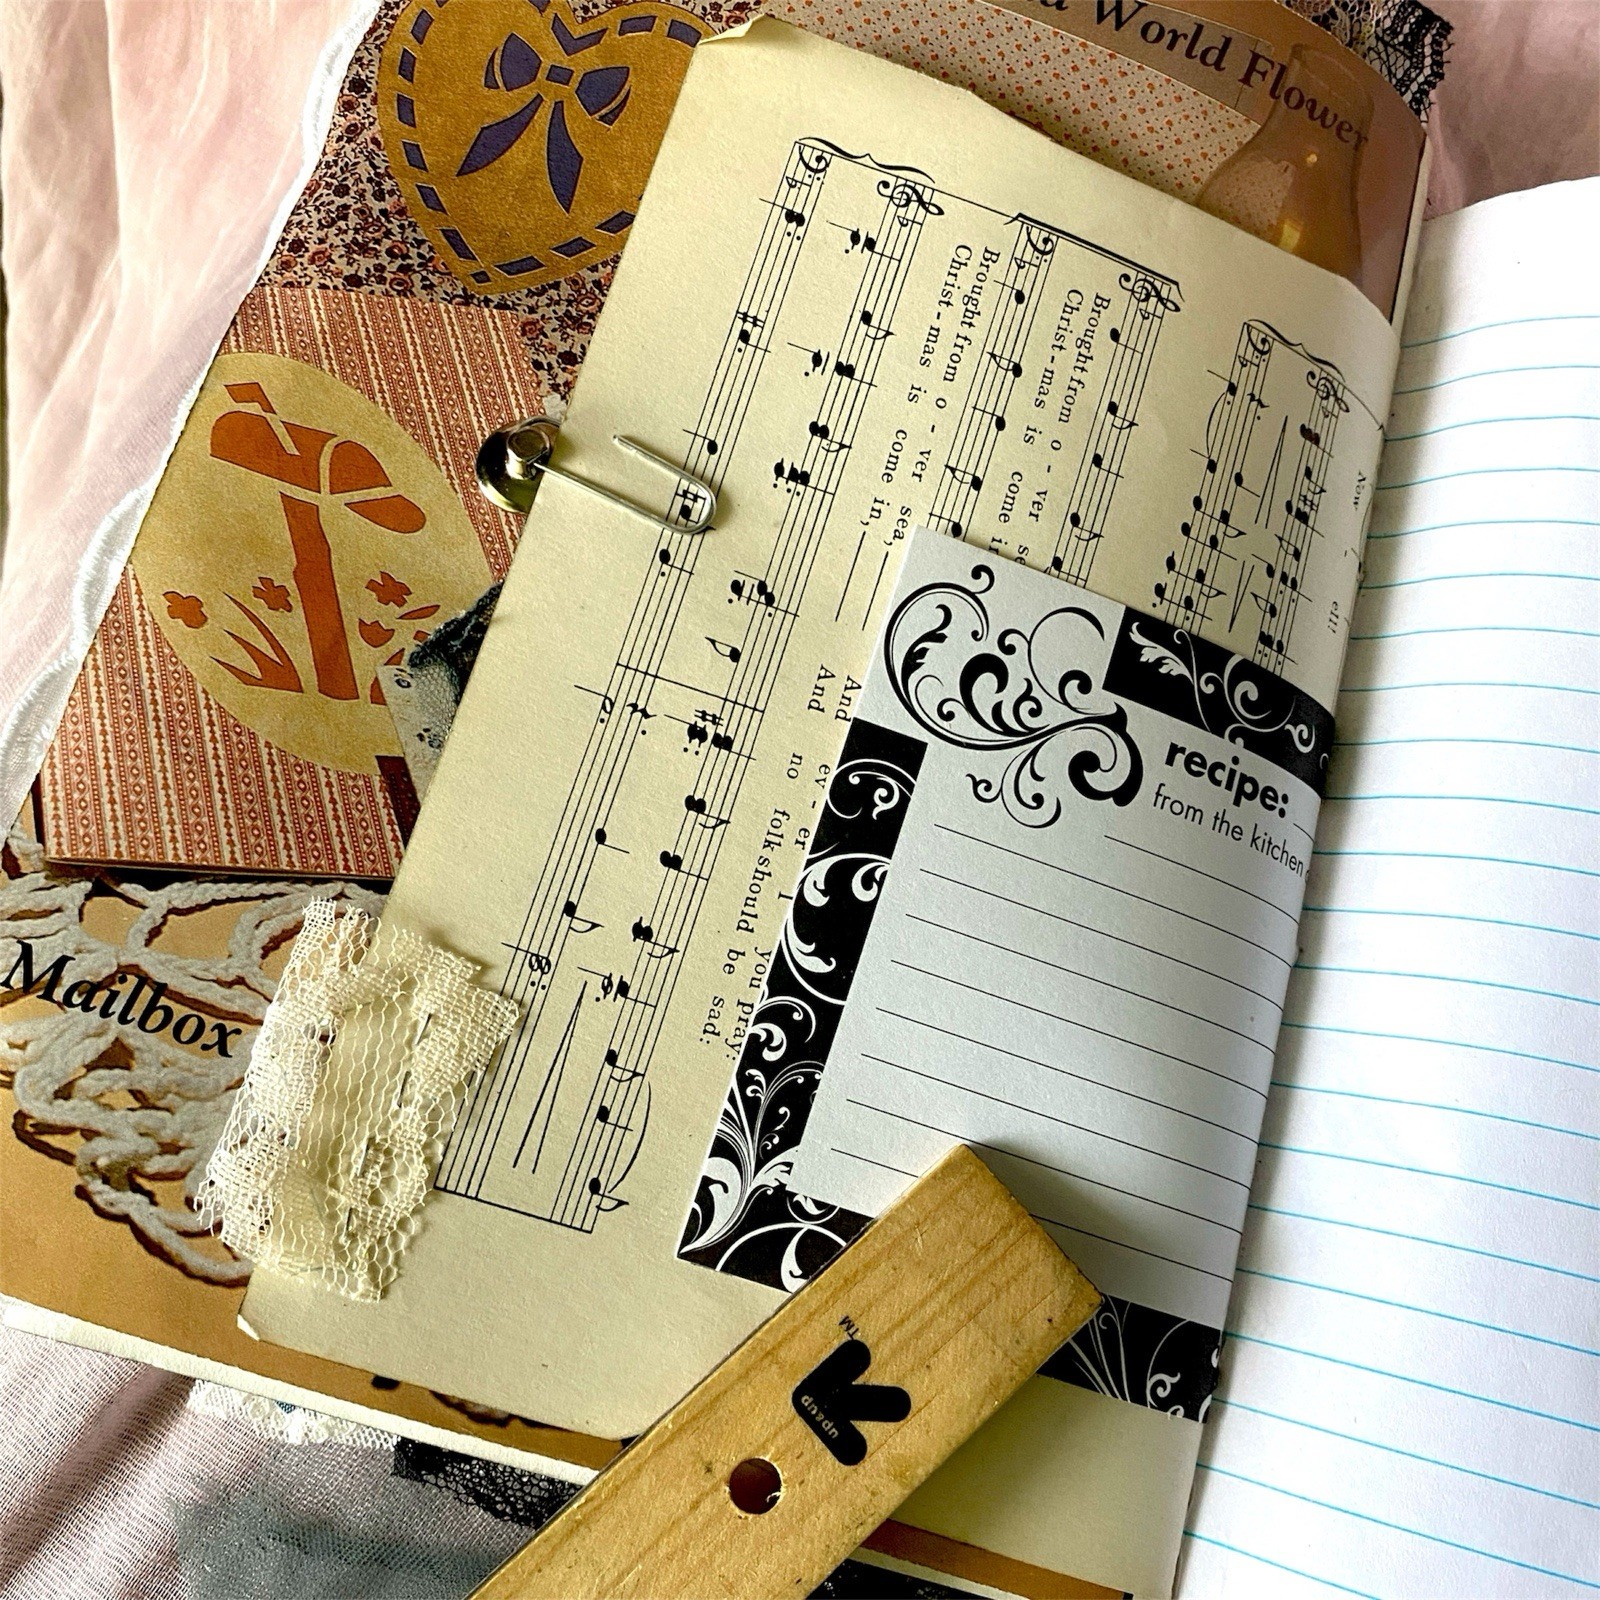 World Flower
Brought from o - ver sea,
Christ - mas is come in,
And ev - er I you pray:
And no folk should be sad:
Brought from o - ver
Christ - mas is come
Now
ell!
recipe:
from the kitchen
Mailbox
up&up
TM